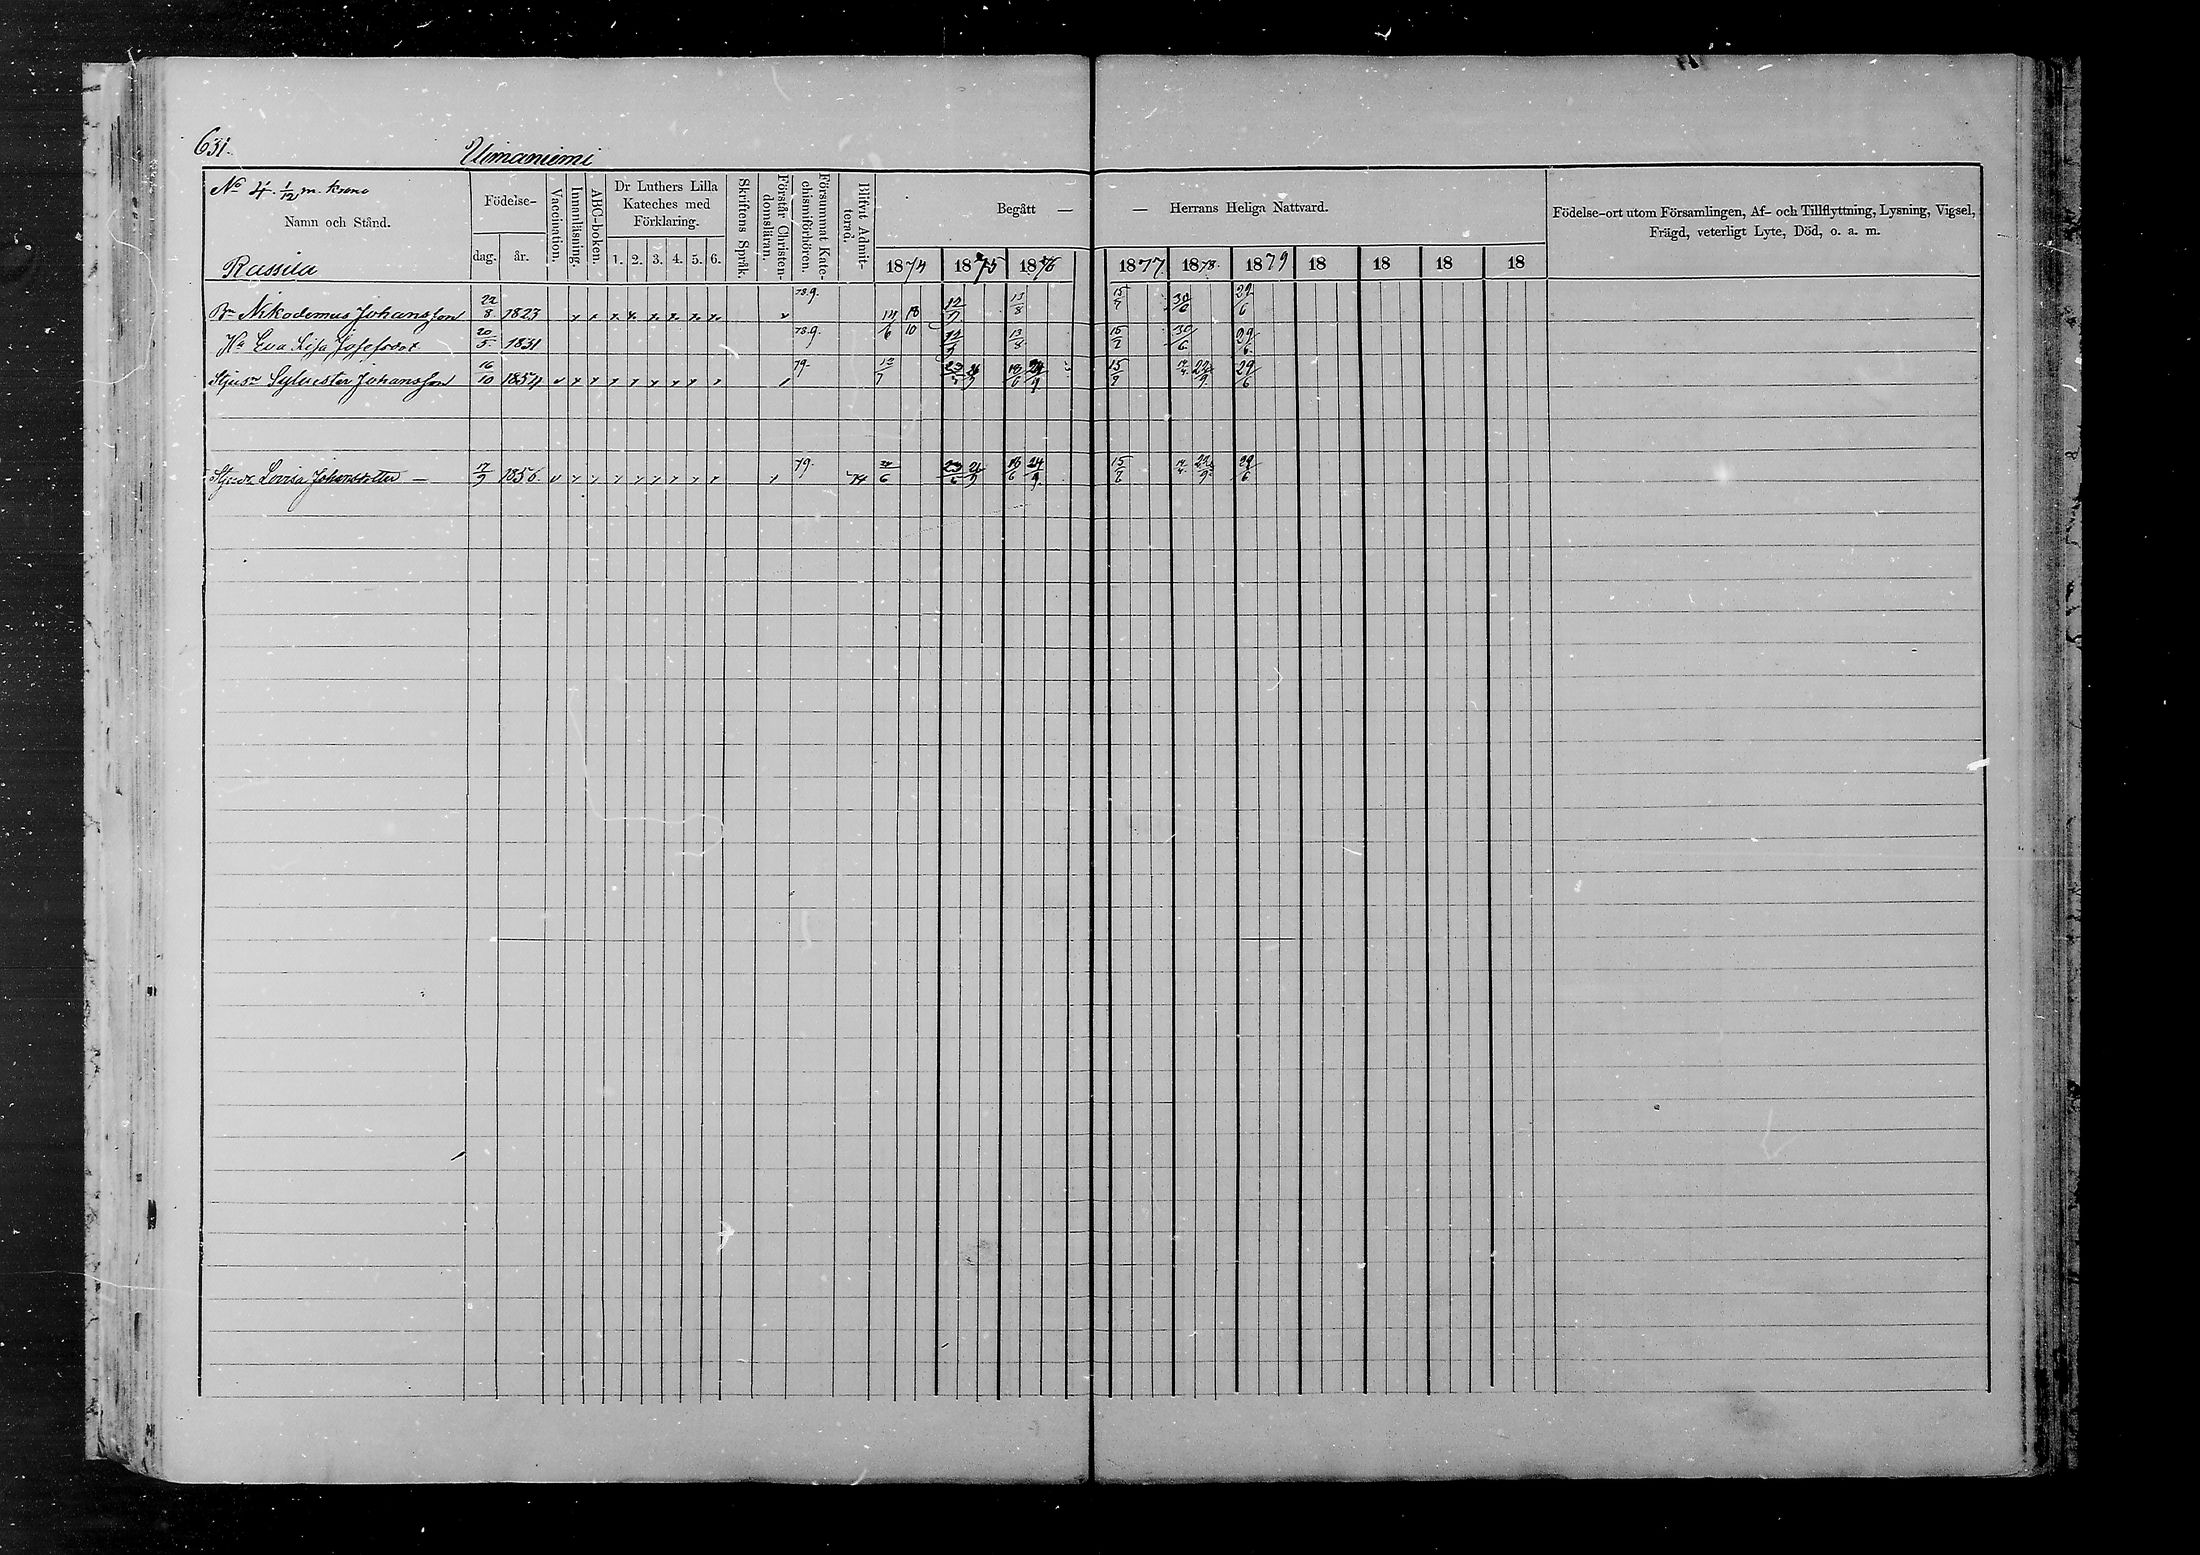 631.
Uimaniemi
No 4. 1/12 m. krono
Namn och Stånd.
Rassila
Födelse-
dag. år.
Vaccination.
Innanläsning.
ABC-boken.
Dr Luthers Lilla Kateches med Förklaring.
1. 2. 3. 4. 5. 6.
Skriftens Språk.
Förstår Christendomsläran.
Försummat Katechismiförhören.
Blifvit Admitterad.
Begått — — Herrans Heliga Nattvard.
1874 1875 1876 1877 1878 1879 18 18 18 18
Födelse-ort utom Församlingen, Af- och Tillflyttning, Lysning, Vigsel,
Frägd, veterligt Lyte, Död, o. a. m.
Bn Nikodemus Johansson 22/8 1823 78.9. 14/6 18/10 12/7 13/8 15/7 30/6 29/6
Ha Eva Lisa Josefsdot 20/5 1831 78.9. 12/7 13/8 15/7 30/6 29/6
Stjusn Sylvester Johansson 16/10 1854 79. 12/7 29/6
Stjudr Lovisa Johansdotter — 17/9 1856. 79. 74 24/9 29/6